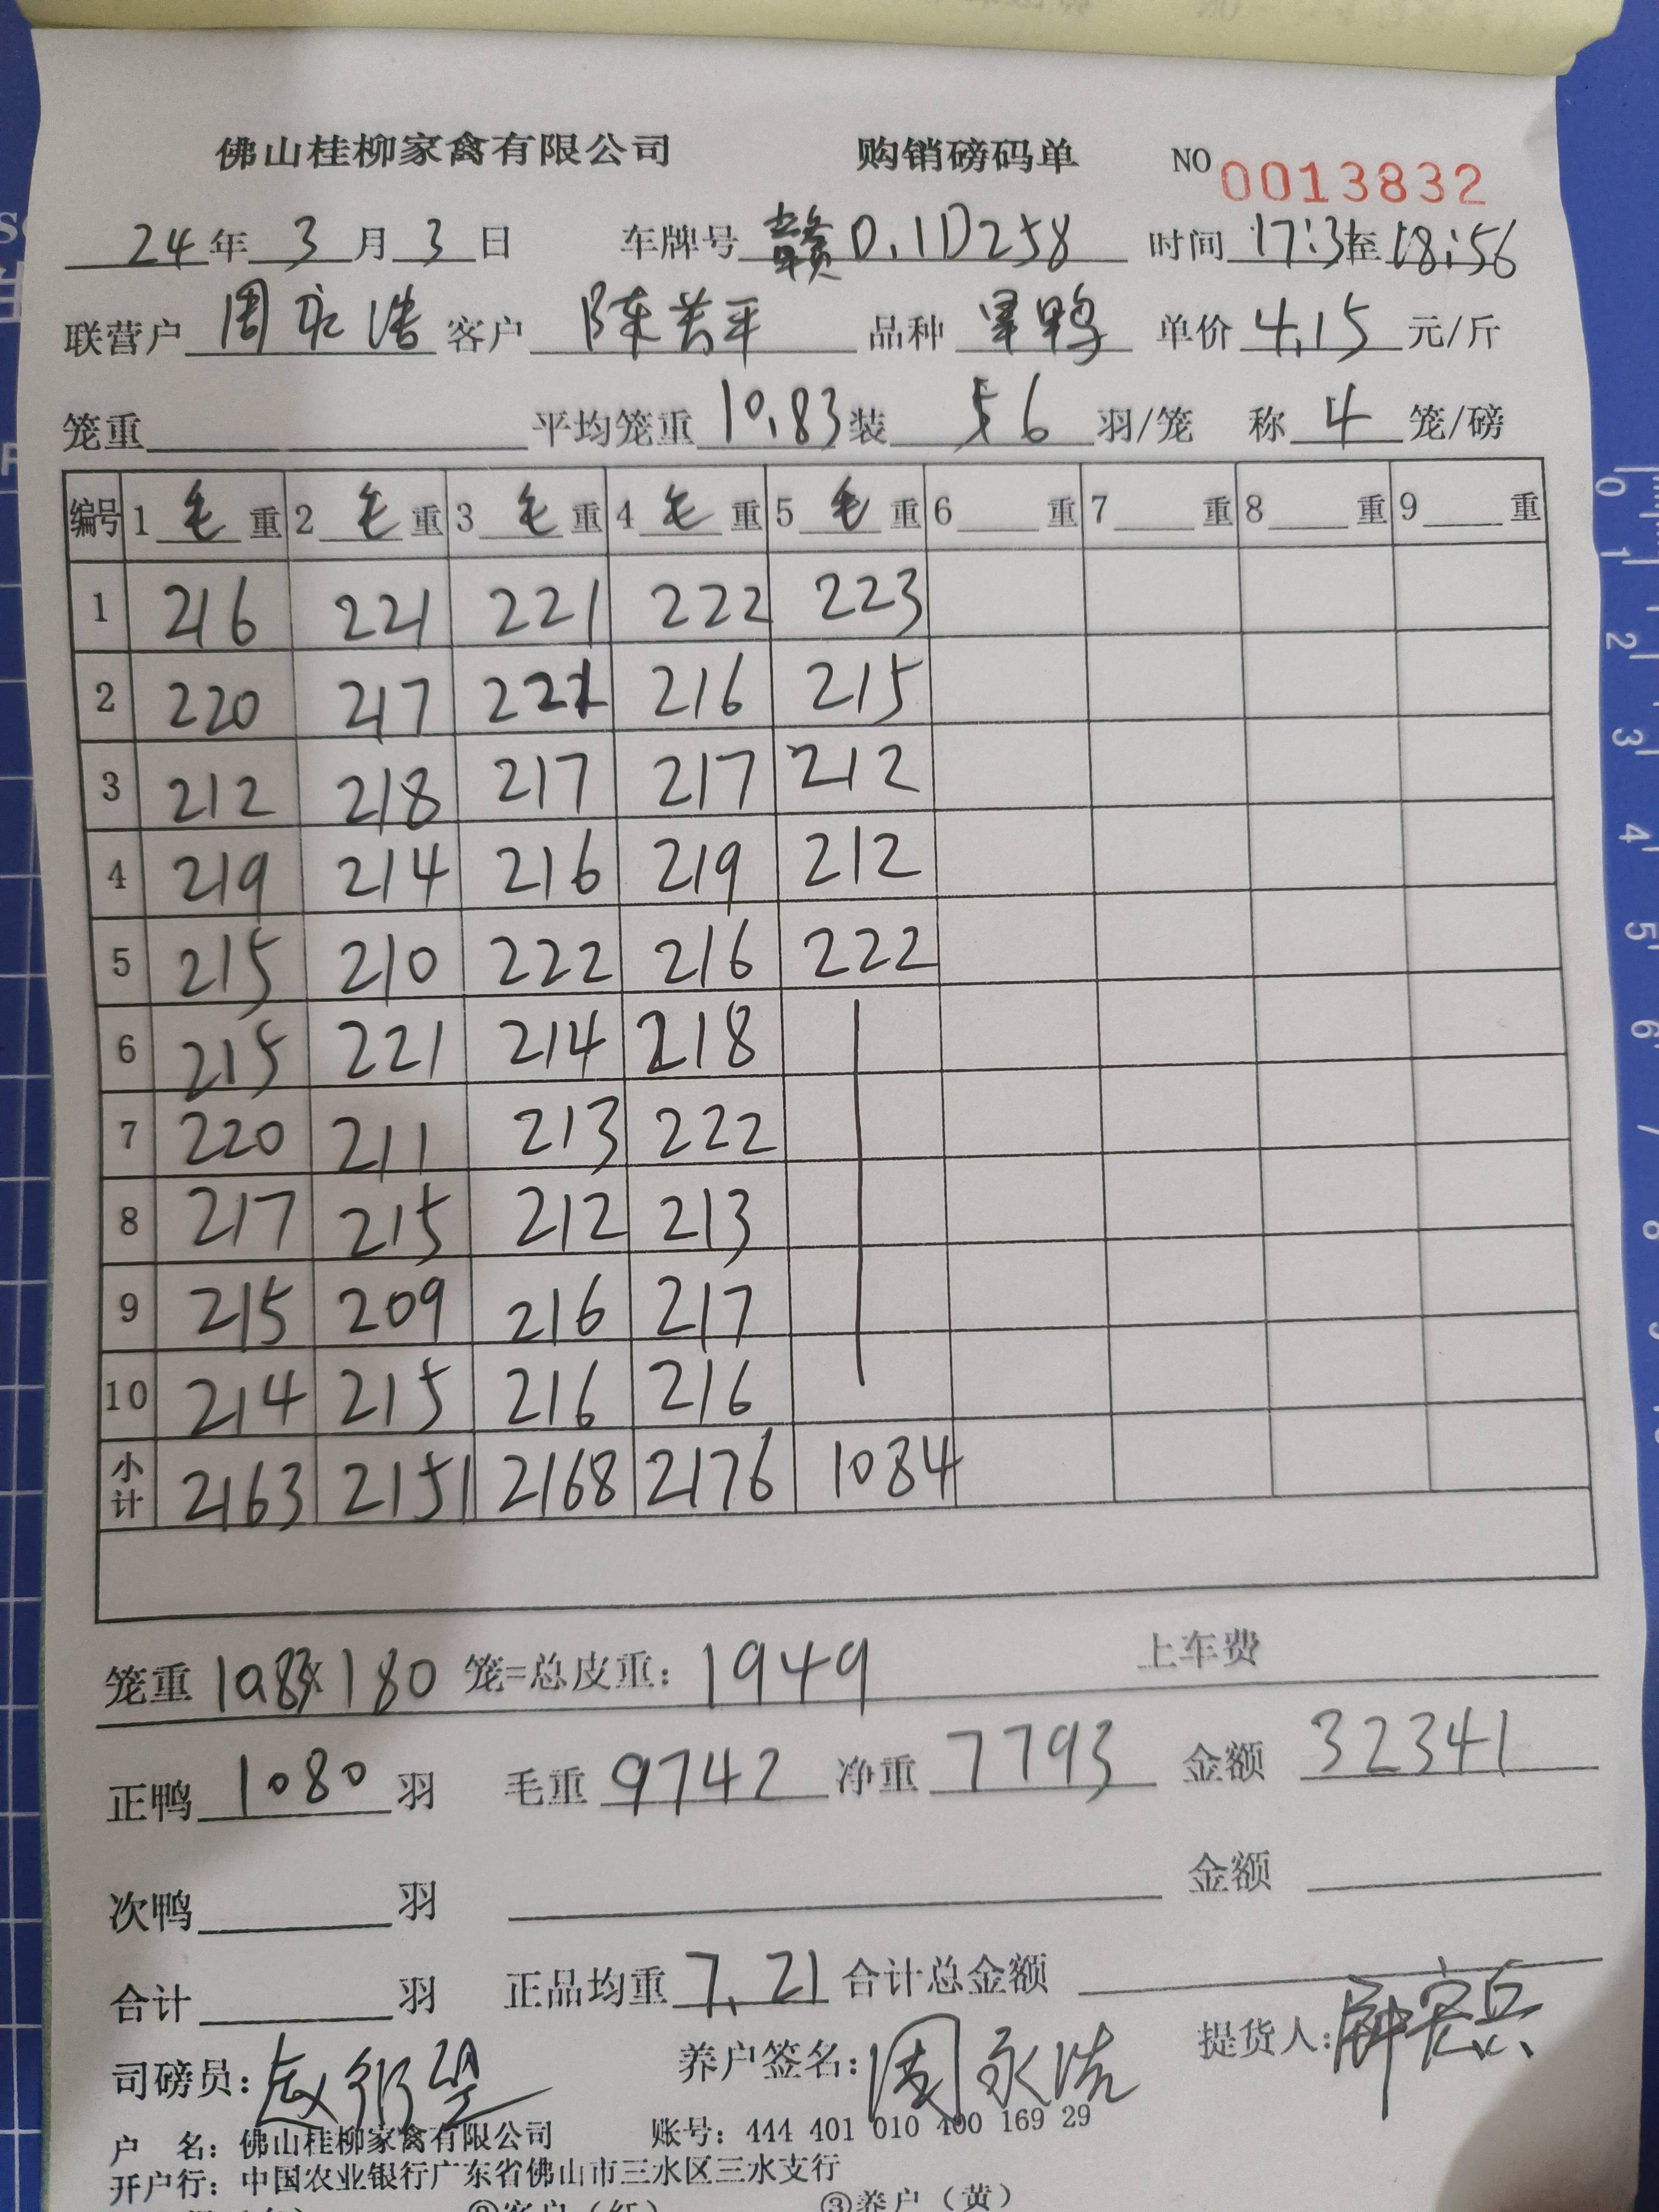 佛山桂柳家禽有限公司 购销磅码单 NO 0013832
24年 3月 3日 车牌号 赣D.1D258 时间 17:3 至 18:56
联营户 周永浩 客户 陈 平 品种 鸭 单价 4.15 元/斤
笼重 平均笼重 10.83 装 6 羽/笼 称 4 笼/磅
编号 1 毛 重 2 毛 重 3 毛 重 4 毛 重 5 毛 重 6 重 7 重 8 重 9 重
1 216 221 221 222 223
2 220 217 221 216 215
3 212 218 217 217 212
4 219 214 216 219 212
5 215 210 222 216 222
6 215 221 214 218
7 220 211 213 222
8 217 215 212 213
9 215 209 216 217
10 214 215 216 216
小计 2163 2151 2168 2176 1084
笼重 10.83×180 笼=总皮重: 1949 上车费
正鸭 1080 羽 毛重 9742 净重 7793 金额 32341
次鸭 羽 金额
合计 羽 正品均重 7.21 合计总金额
司磅员: 养户签名: 周永浩 提货人:
户 名: 佛山桂柳家禽有限公司 账号: 444 401 010 400 169 29
开户行: 中国农业银行广东省佛山市三水区三水支行
②客户(红) ③养户(黄)